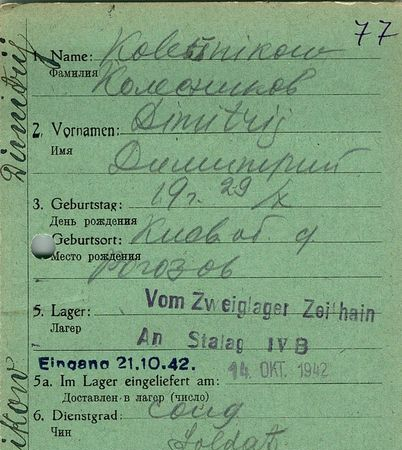 77
1. Name: Kolesnikow
Фамилия Колесников
2. Vornamen: Dimitrij
Имя Димитрий
3. Geburtstag: 19г. 29/X
День рождения
Geburtsort: Киев об д
Место рождения Рогозов
5. Lager: Vom Zweiglager Zeithain
Лагерь
An Stalag IV B
Eingang 21.10.42. 14. OKT. 1942
5a. Im Lager eingeliefert am:
Доставлен в лагер (число)
6. Dienstgrad: солд
Чин Soldat
Dimitrij